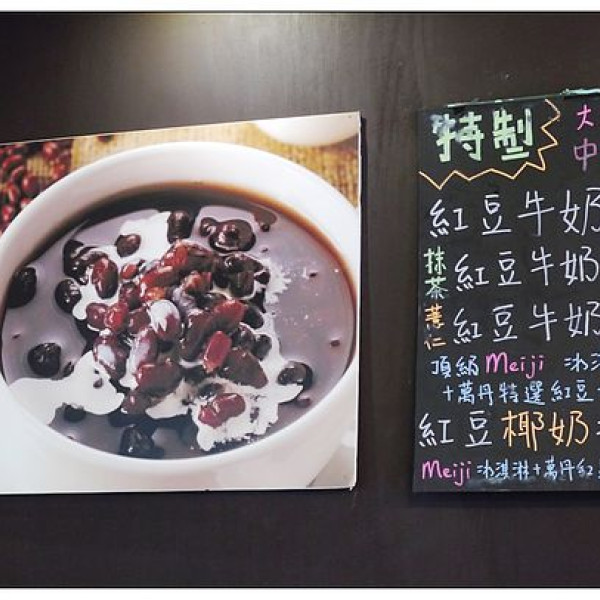 特製
大
中
紅豆牛奶
抹茶紅豆牛奶
薏仁紅豆牛奶
頂級Meiji 冰淇
十萬丹特選紅豆
紅豆椰奶
Meiji 冰淇淋十萬丹紅